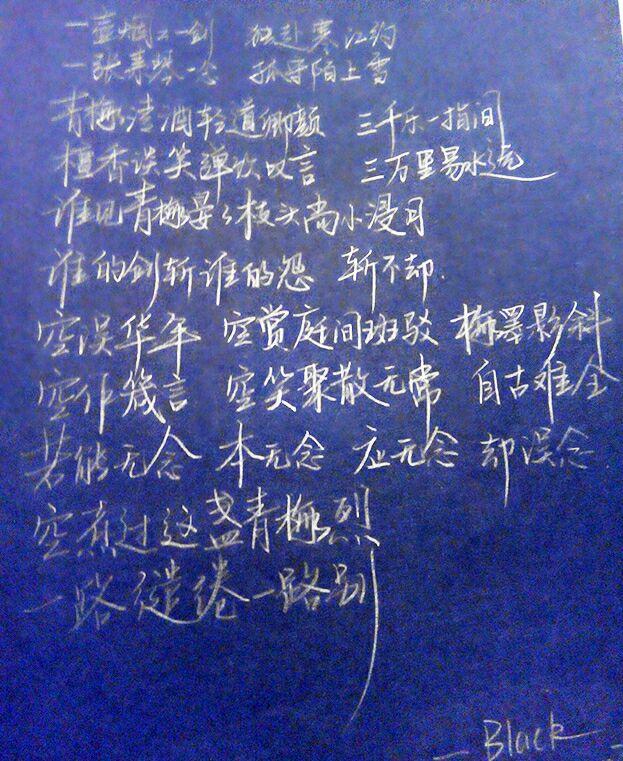 一壶烟二一剑 独赴寒江约
一张素琴一念 孤守陌上雪
青梅渍酒轻道卿颜 三千乐一指间
檀香谈笑弹吹叹言 三万里易水远
谁见青梅晏々枝头尚小浸月
谁的剑斩谁的怨 斩不却
空误华年 空赏庭间斑驳 梅墨影斜
空作箴言 空笑聚散无常 自古难全
若能无念 本无念 应无念 却误念
空煮过这盏青梅烈
一路缱绻一路别
— Black —